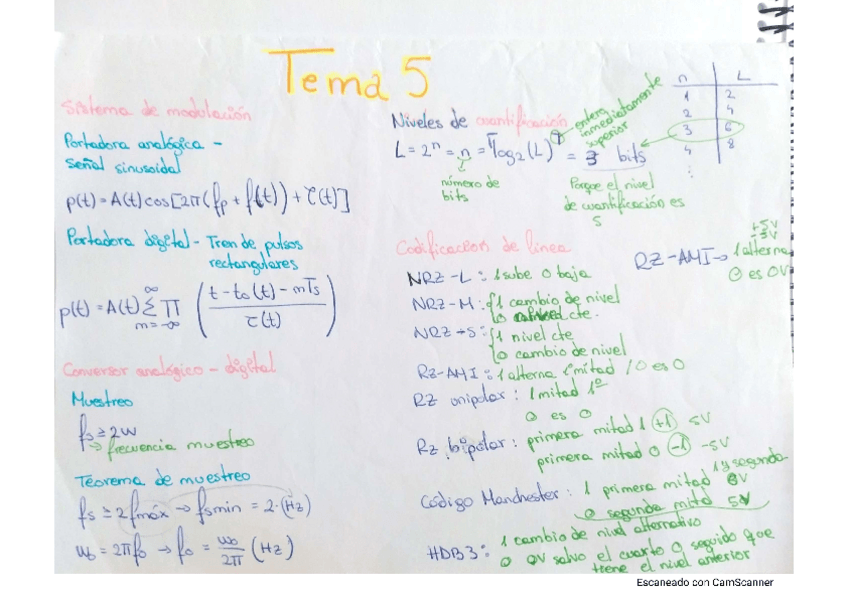 Tema 5
Sistema de modulación
Portadora analógica -
Señal sinusoidal
p(t) = A(t) cos [2π(fp + f(t)) + τ(t)]
Portadora digital - Tren de pulsos
rectangulares
p(t) = A(t) ∑ ∏ ( (t - to(t) - mTs) / τ(t) )
∞
m = -∞
Conversor analógico - digital
Muestreo
fs ≥ 2W
→ frecuencia muestreo
Teorema de muestreo
fs ≥ 2 fmáx → fsmin = 2·(Hz)
ωo = 2πfo → fo = ωo/2π (Hz)
Niveles de cuantificación
L = 2ⁿ = n = ⌈log₂(L)⌉ = 3 bits
número de
bits
entero
inmediatamente
superior
Porque el nivel
de cuantificación es
5
n L
1 2
2 4
3 6
4 8
⋮
Codificación de línea
NRZ-L : 1 sube 0 baja
NRZ-M : {1 cambio de nivel
{0 cte.
NRZ-S : {1 nivel cte
{0 cambio de nivel
RZ-AMI : 1 alterna 1ª mitad / 0 es 0
RZ unipolar : 1 mitad 1º
0 es 0
RZ bipolar : primera mitad 1 (+1) 5V
primera mitad 0 (-1) -5V
Código Manchester : 1 primera mitad 0V
1 y segunda
0 segunda mitad 5V
HDB3 : 1 cambio de nivel alternativo
0 0V salvo el cuarto 0 seguido que
tiene el nivel anterior
RZ-AMI → 1 alterna
+5V
-5V
0 es 0V
Escaneado con CamScanner